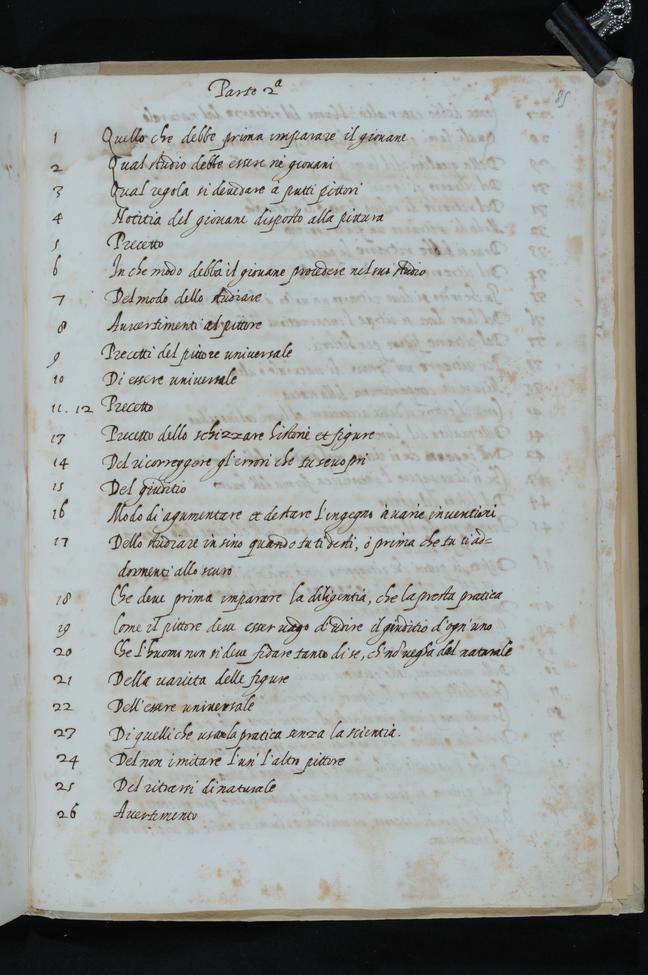 Parte 2ª
85
1 Quello che debbe prima imparare il giovane
2 Qual studio debbe essere ne giovani
3 Qual regola si deve dare à putti pittori
4 Notitia del giovane disposto alla pittura
5 Precetto
6 In che modo debba il giovane procedere nel suo studio
7 Del modo dello studiare
8 Avvertimenti al pittore
9 Precetti del pittore universale
10 Di essere universale
11. 12 Precetto
13 Precetto dello schizzare historie et figure
14 Del ricorreggere gl'errori che tu scuopri
15 Del giuditio
16 Modo di agumentare et destare l'ingegno à varie inventioni
17 Dello studiare in sino quando tu ti desti, ò prima che tu ti ad=
dormenti allo scuro
18 Che deve prima imparare la diligentia, che la presta pratica
19 Come il pittore deve esser vago d'udire il giuditio d'ogn'uno
20 Che l'huomo non si deve fidare tanto di se, ch no' vegha dal naturale
21 Della varieta delle figure
22 Dell'essere universale
23 Di quelli che usano la pratica senza la scientia.
24 Del non imitare l'un' l'altro pittore
25 Del ritrarri di naturale
26 Avertimento